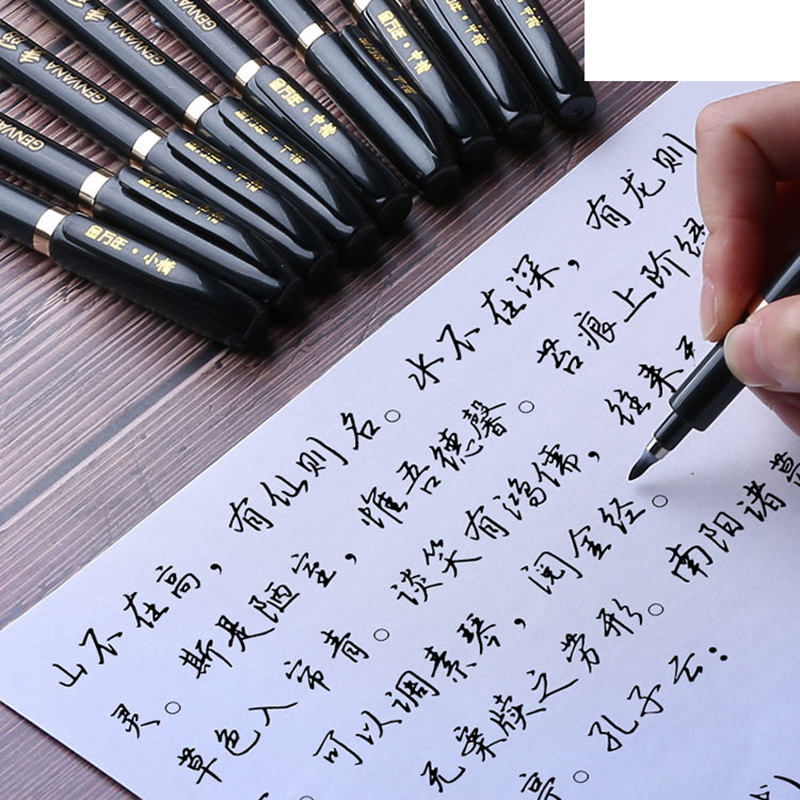 GENVANA
GENVANA
GENVANA
金万年·中楷
金万年·中楷
金万年·小楷
山不在高，有仙则名。水不在深，有龙则
灵。斯是陋室，惟吾德馨。苔痕上阶绿
草色入帘青。谈笑有鸿儒，往来无
可以调素琴，阅金经。
无案牍之劳形。南阳诸葛
亭。孔子云：